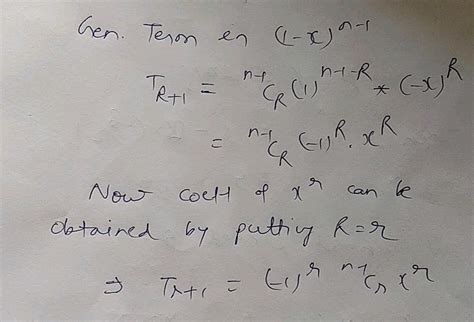 Gen. Term en (1-x)^{n-1}
T_{R+1} = ^{n-1}C_R (1)^{n-1-R} * (-x)^R
= ^{n-1}C_R (-1)^R . x^R
Now coeff of x^r can be
obtained by putting R=r
⇒ T_{r+1} = (-1)^r ^{n-1}C_r x^r